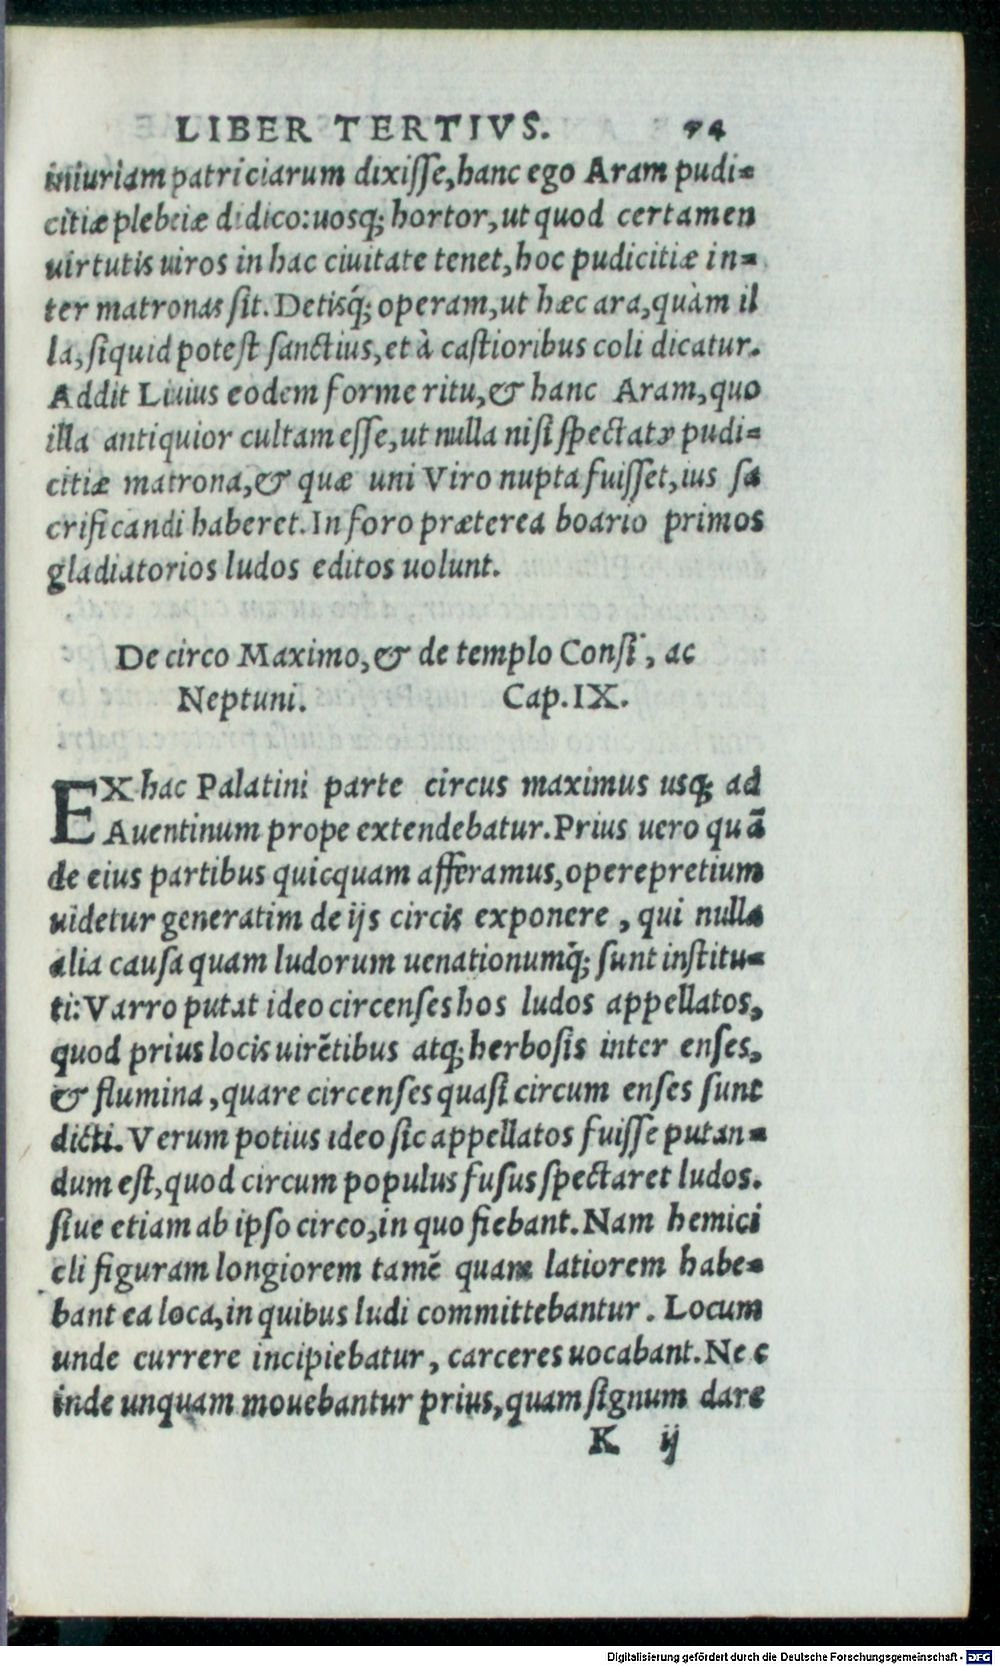 LIBER TERTIVS. 74
iniuriam patriciarum dixisse, hanc ego Aram pudi=
citiæ plebeiæ didico: uosq; hortor, ut quod certamen
uirtutis uiros in hac ciuitate tenet, hoc pudicitiæ in=
ter matronas sit. Detisq́; operam, ut hæc ara, quàm il
la, siquid potest sanctius, et à castioribus coli dicatur.
Addit Liuius eodem forme ritu, & hanc Aram, quo
illa antiquior cultam esse, ut nulla nisi spectatæ pudi=
citiæ matrona, & quæ uni Viro nupta fuisset, ius sa
crificandi haberet. In foro præterea boario primos
gladiatorios ludos editos uolunt.
De circo Maximo, & de templo Consi, ac
Neptuni. Cap. IX.
EX hac Palatini parte circus maximus usq; ad
Auentinum prope extendebatur. Prius uero quã
de eius partibus quicquam afferamus, operepretium
uidetur generatim de ijs circis exponere, qui nulla
alia causa quam ludorum uenationumq́; sunt institu=
ti: Varro putat ideo circenses hos ludos appellatos,
quod prius locis uirẽtibus atq; herbosis inter enses,
& flumina, quare circenses quasi circum enses sunt
dicti. Verum potius ideo sic appellatos fuisse putan=
dum est, quod circum populus fusus spectaret ludos.
siue etiam ab ipso circo, in quo fiebant. Nam hemici
cli figuram longiorem tamẽ quam latiorem habe=
bant ea loca, in quibus ludi committebantur. Locum
unde currere incipiebatur, carceres uocabant. Nec
inde unquam mouebantur prius, quam signum dare
K ij
Digitalisierung gefördert durch die Deutsche Forschungsgemeinschaft - DFG